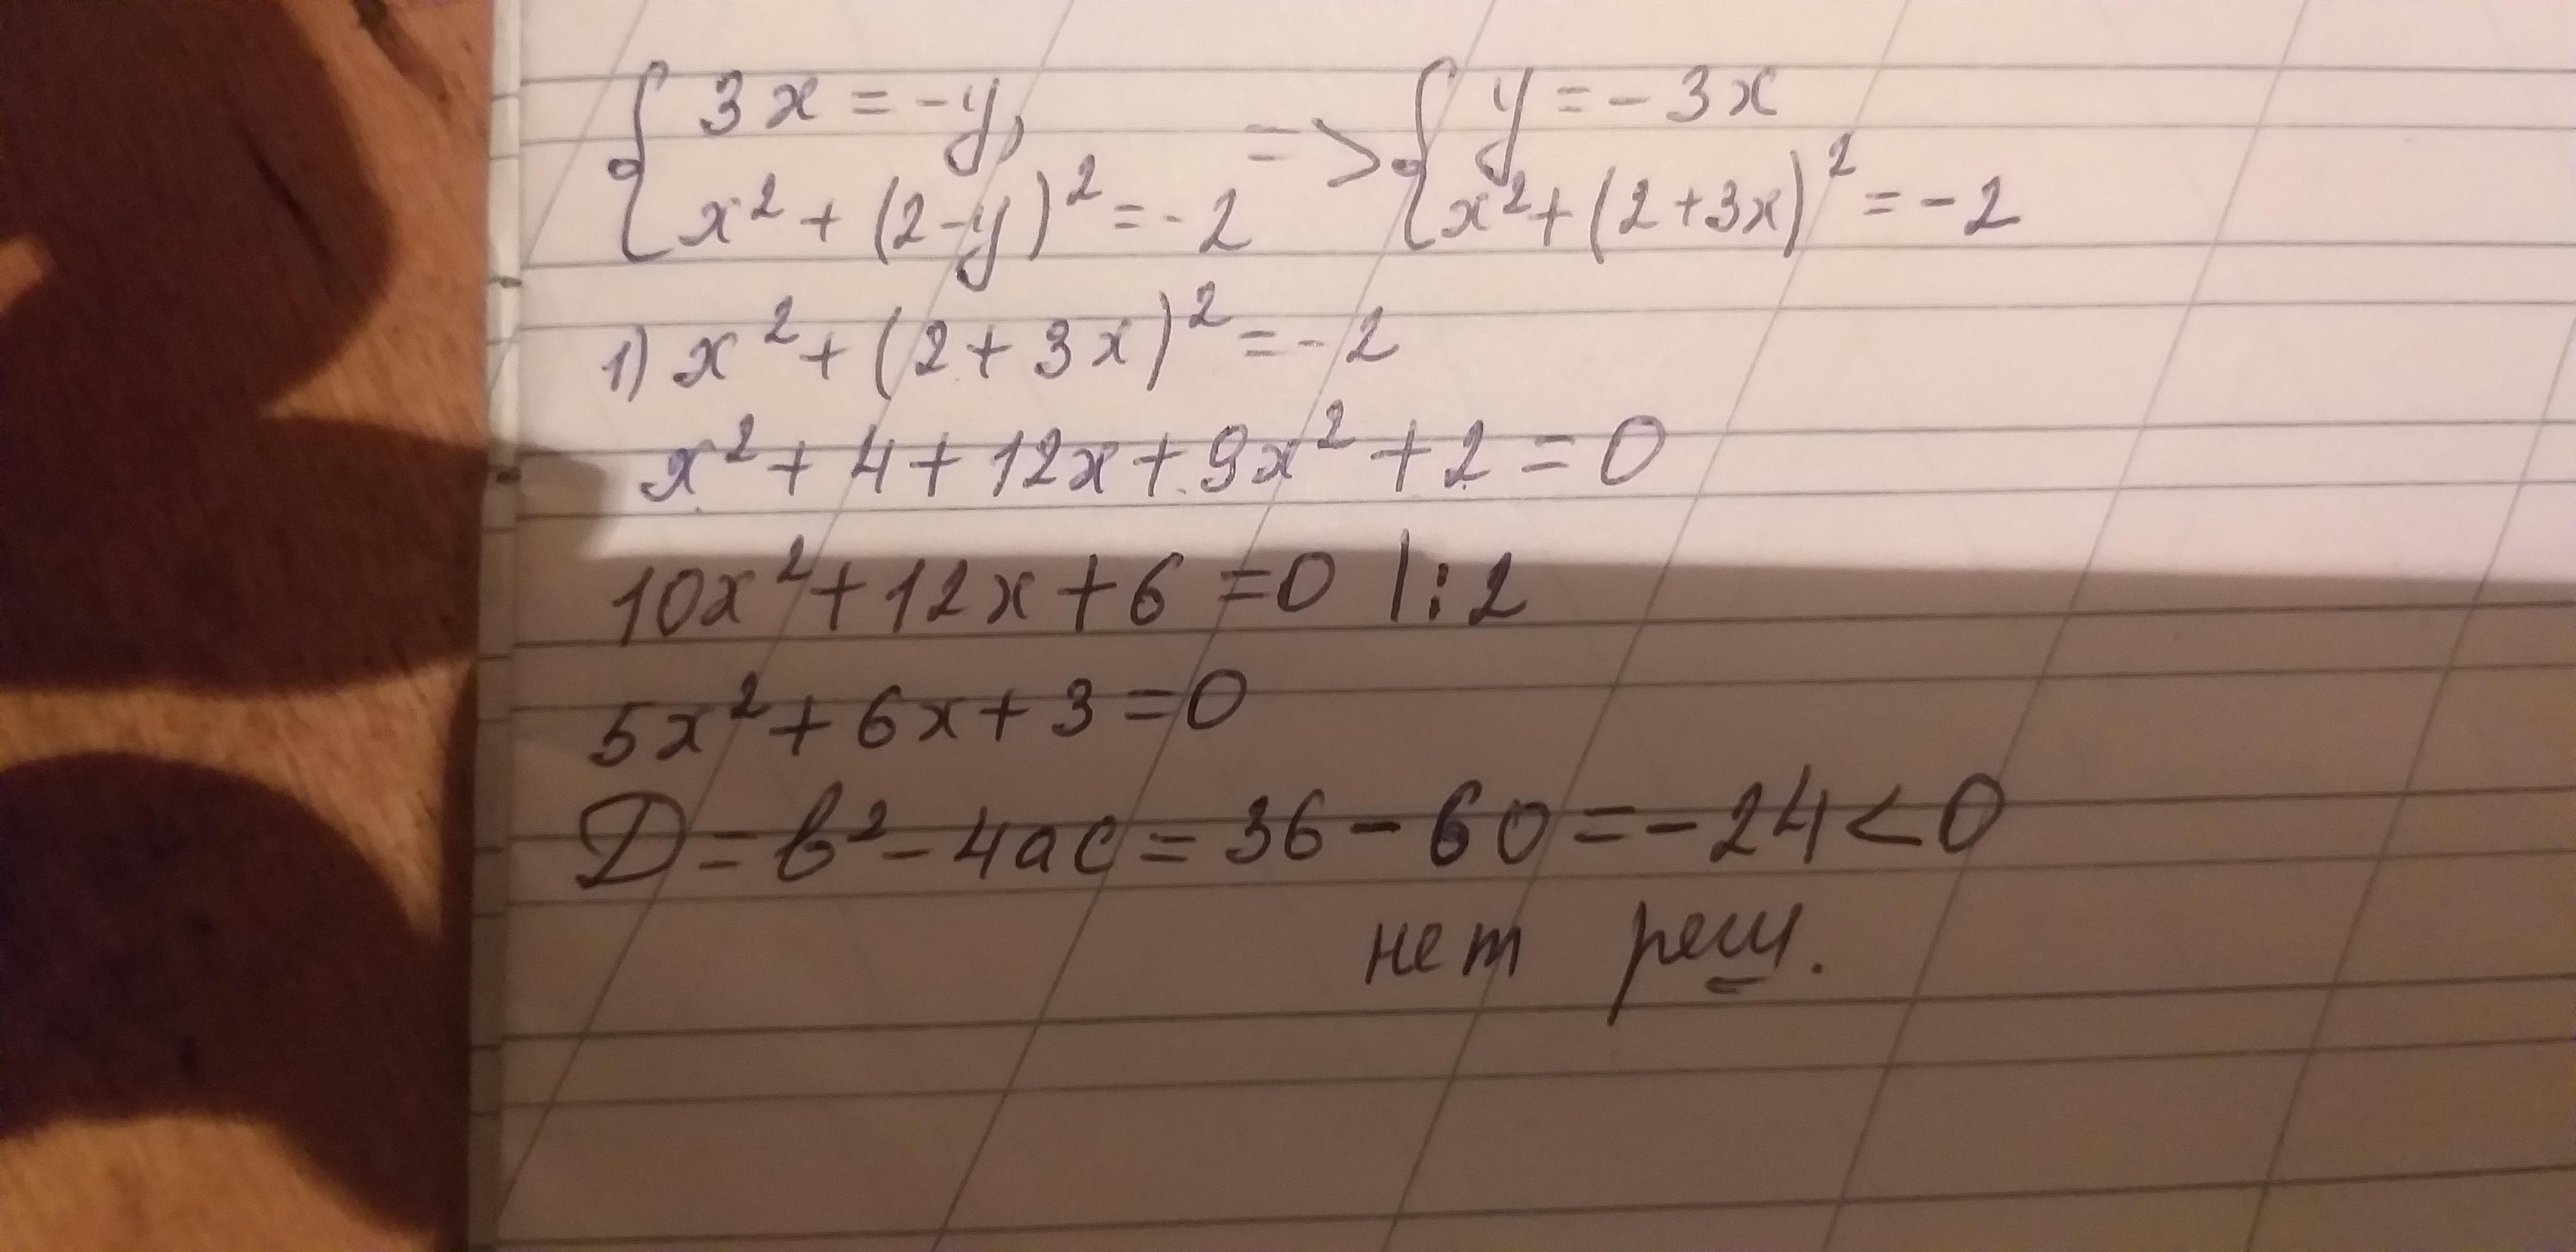 { 3x = -y, => { y = -3x
x² + (2-y)² = -2 x² + (2+3x)² = -2
1) x² + (2 + 3x)² = -2
x² + 4 + 12x + 9x² + 2 = 0
10x² + 12x + 6 = 0 | : 2
5x² + 6x + 3 = 0
D = b² - 4ac = 36 - 60 = -24 < 0
нет реш.